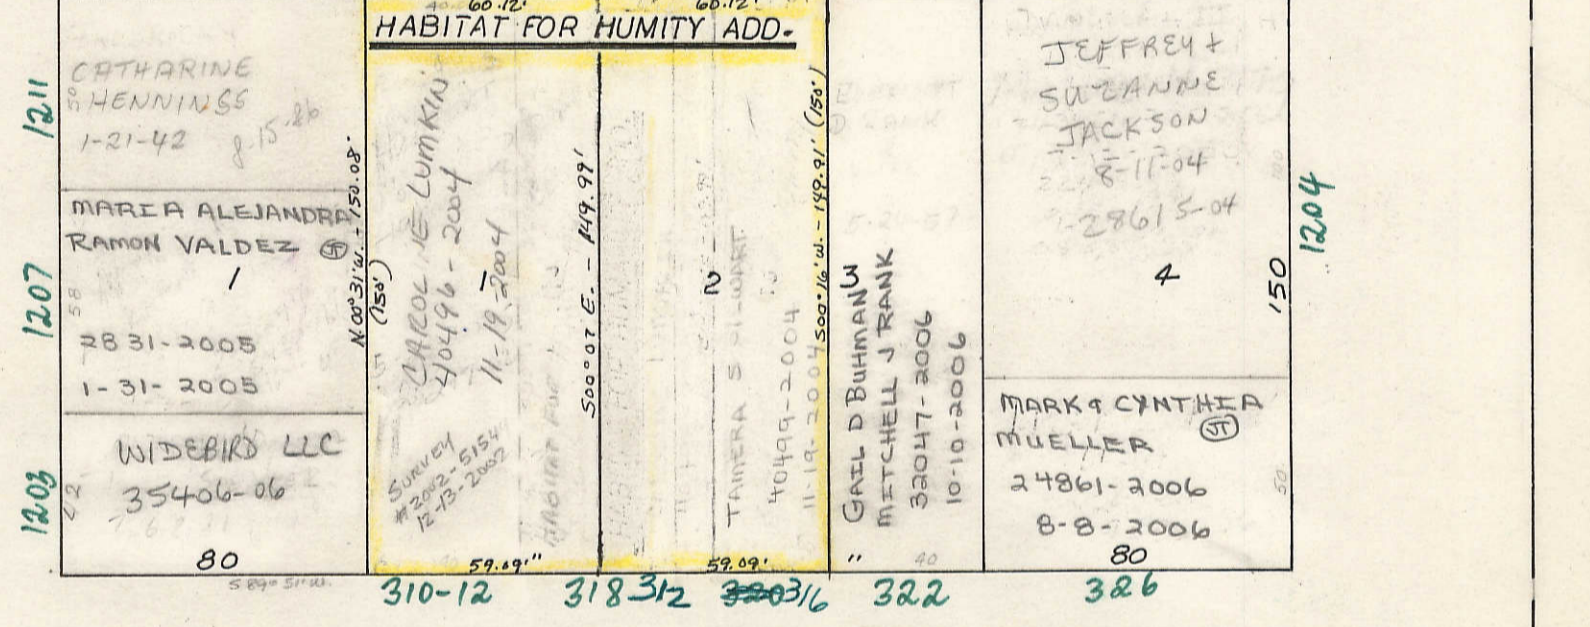 60.12'
60.12'
HABITAT FOR HUMITY ADD.
1211
CATHARINE
HENNINGS
50
1-21-42
8.15.26
1207
MARIA ALEJANDRA
RAMON VALDEZ JT
1
58
2831-2005
1-31-2005
1203
WIDEBIRD LLC
35406-06
42
80
S 89° 51' W.
N.00°31'W. - 150.08'
(150')
CAROLINE LUMKIN
40496-2004
11-19-2004
1
SURVEY
#2002-5154
12-13-2002
HABITAT FOR
59.09'"
S00°07 E. - 149.99'
2
TAMERA S
40499-2004
11-19-2004
59.09'
S00°16'W. - 149.91' (150')
3
GAIL D BUHMAN
MITCHELL J RANK
32047-2006
10-10-2006
"
40
JEFFREY +
SUZANNE
JACKSON
8-11-04
28615-04
4
150
1204
MARK & CYNTHIA
MUELLER JT
24861-2006
8-8-2006
50
80
310-12
318 312
320 316
322
326